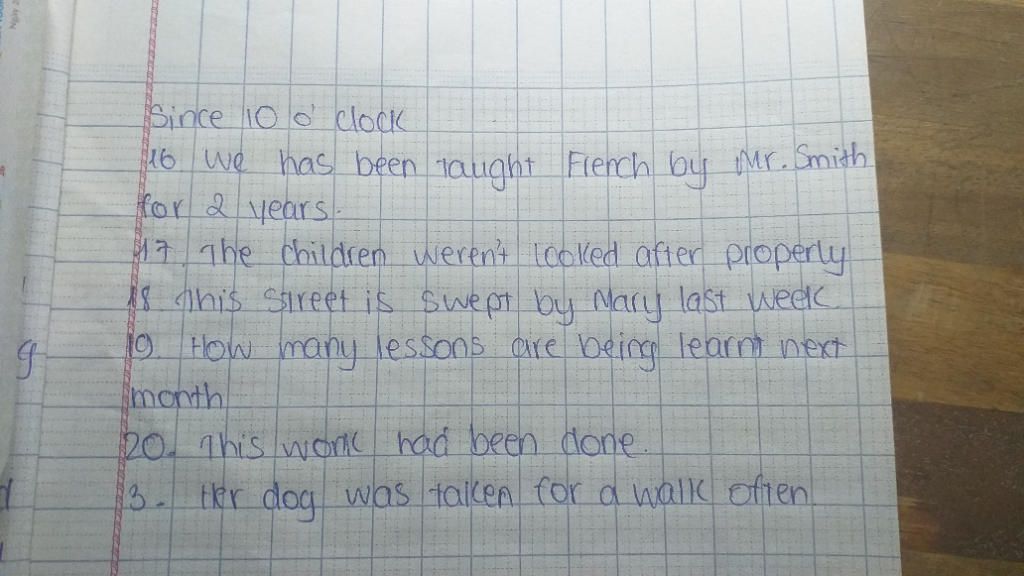 Since 10 o' clock
16 We has been taught French by Mr. Smith
for 2 years.
17. The children weren't looked after properly
18 This street is swept by Mary last week
19. How many lessons are being learnt next
month
20. This work had been done.
3. Her dog was taken for a walk often
g